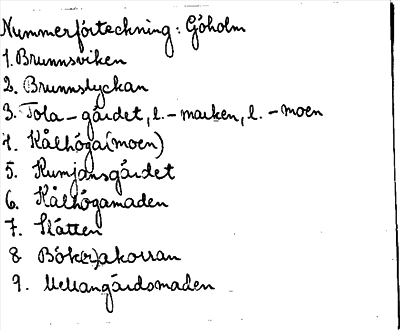 Nummerförteckning: Göholm
1. Brunnsviken
2. Brunnslyckan
3. Tola-gärdet, l.-marken, l.-moen
4. Kålhöga(moen)
5. Rumjansgärdet
6. Kålhögamaden
7. Slätten
8 Bök(e)akorran
9. Mellangärdsmaden